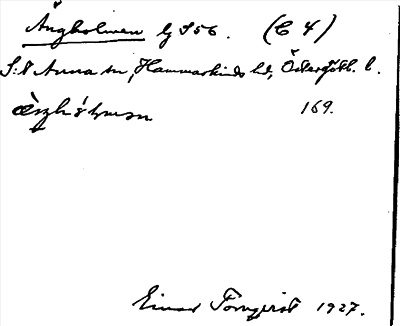 Ängholmen lg S56. (C 4)
S:t Anna sn, Hammarkinds hd, Östergötl. l.
169.
Einar Törnqvist 1927.